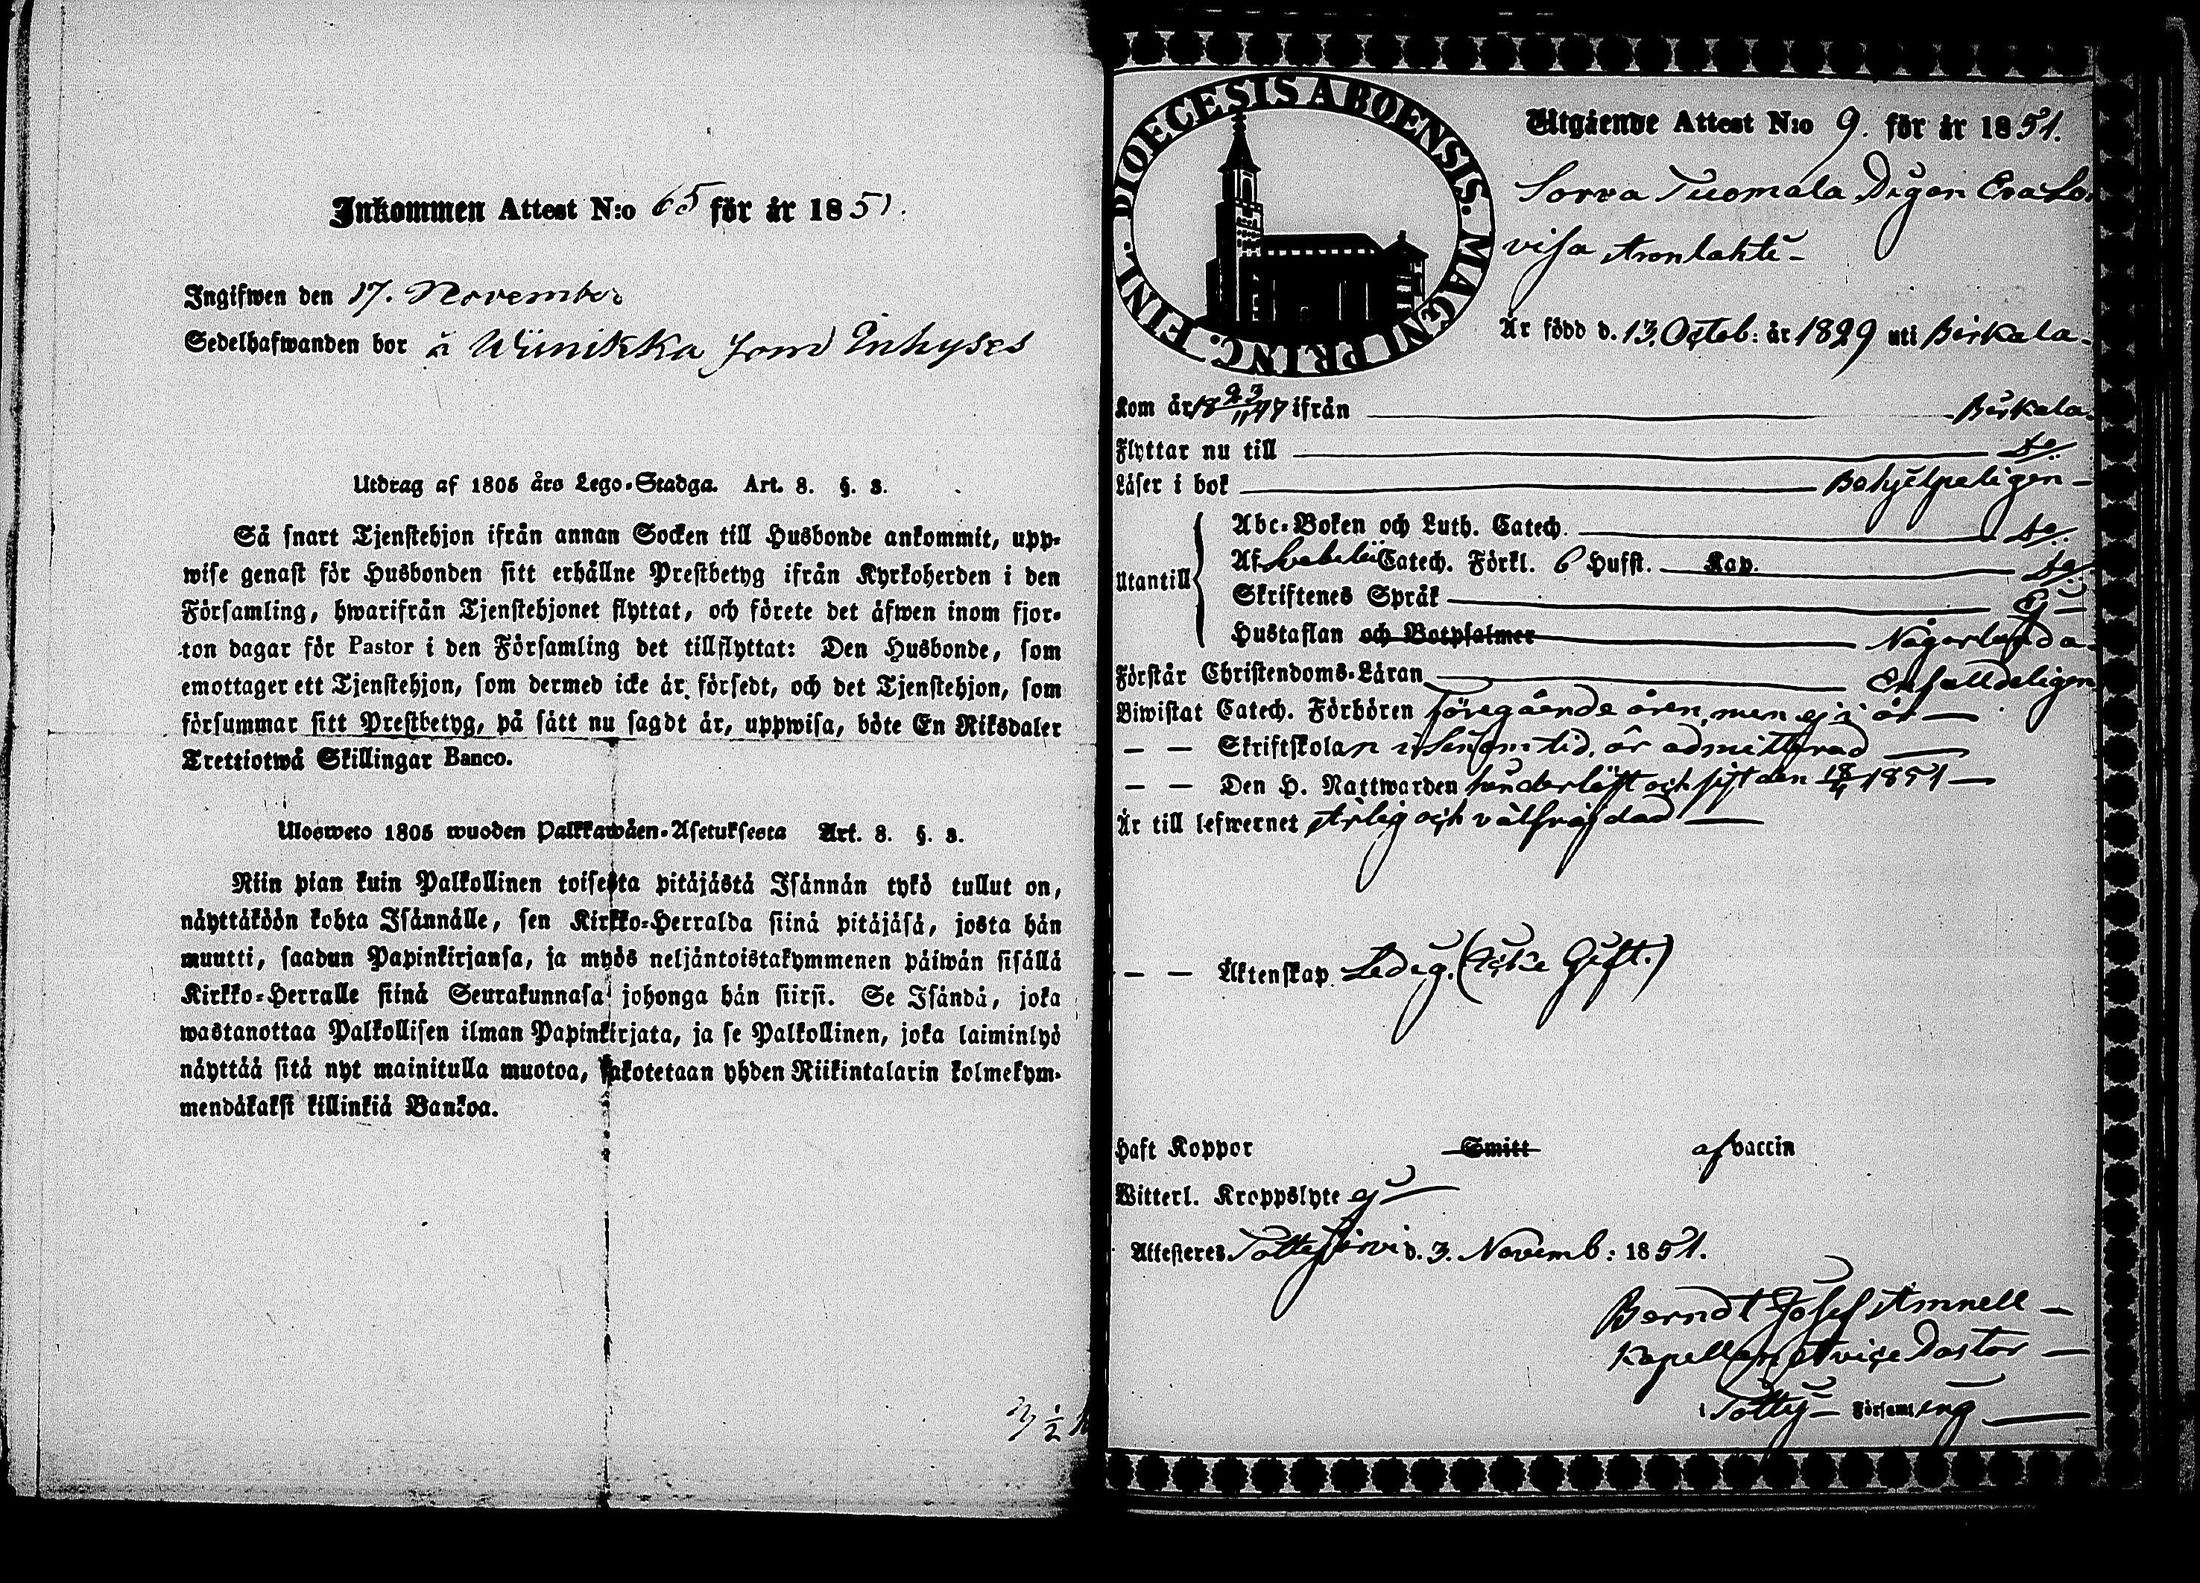 Inkommen Attest N:o 65 för år 1851.
Ingifwen den 17. November
Sedelhafwanden bor å Wiinikka som Inhyses
Utdrag af 1805 års Lego-Stadga. Art. 8. §. 3.
Så snart Tjenstehjon ifrån annan Socken till Husbonde ankommit, upp-
wise genast för Husbonden sitt erhållne Prestbetyg ifrån Kyrkoherden i den
Församling, hwarifrån Tjenstehjonet flyttat, och förete det åfwen inom fjor-
ton dagar för Pastor i den Församling det tillflyttat: Den Husbonde, som
emottager ett Tjenstehjon, som dermed icke är försedt, och det Tjenstehjon, som
försummar sitt Prestbetyg, på sätt nu sagdt är, uppwisa, böte En Riksdaler
Trettiotwå Skillingar Banco.
Ulosweto 1805 wuoden Palkkawäen-Asetuksesta Art. 8. §. 3.
Niin pian kuin Palkollinen toisesta pitäjästä Isännän tykö tullut on,
näyttäköön kohta Isännälle, sen Kirkko-Herralda siinä pitäjäsä, josta hän
muutti, saadun Papinkirjansa, ja myös neljäntoistakymmenen päiwän sisällä
Kirkko-Herralle siinä Seurakunnasa johonga hän siirsi. Se Isändä, joka
wastanottaa Palkollisen ilman Papinkirjata, ja se Palkollinen, joka laiminlyö
näyttää sitä nyt mainitulla muotoa, sakotetaan yhden Riikintalarin kolmekym-
mendäkaksi killinkiä Bankoa.
DIOECESIS ABOENSIS. MAGNI PRINC. FINL.
Utgående Attest N:o 9. för år 1851.
Sorva Tuomala Digon Eva Lo-
visa Aronlahti
Är född d. 13. Octob: år 1829 uti Birkala
Kom år 18 23/11 47 ifrån Birkala
Flyttar nu till do
Läser i bok Behjelpeligen
Utantill
Abc-Boken och Luth. Catech. do
Af Svebelii Catech. Förkl. 6 Hufst. Kap. do
Skriftenes Språk Ej
Hustaflan och Botpsalmer Någorlunda
Förstår Christendoms-Läran Enfalldeligen
Biwistat Catech. Förhören föregående åren, men ej i år
— — Skriftskolan i sin tid, är admitterad
— — Den H. Nattwarden och sist den 18/ 1851
Är till lefwernet Ärlig och välfräjdad
— — Äktenskap Ledig. (Icke Gift.)
Haft Koppor Smitt af vaccin
Witterl. Kroppslyte ej
Attesteres Tottijärvi d. 3. Novemb: 1851.
Berndt Josef Amnell
Kapellan et vice Pastor
i Totty Församling